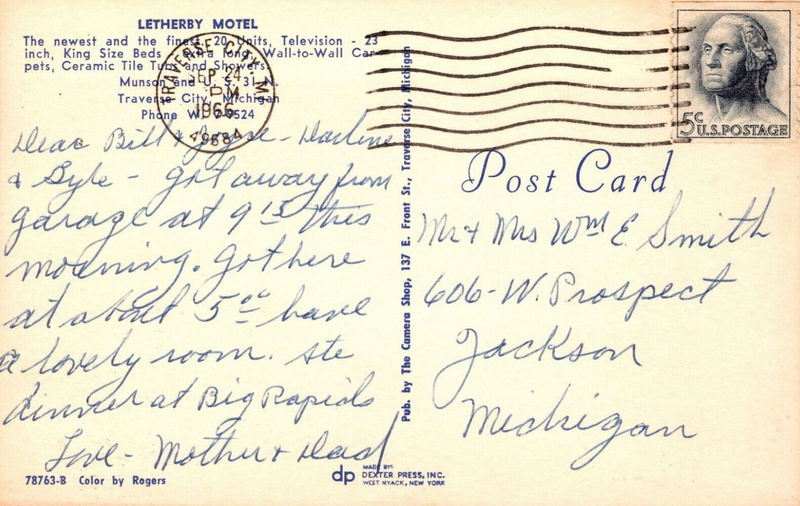 LETHERBY MOTEL
The newest and the finest, 20 Units, Television - 23
inch, King Size Beds Extra long, Wall-to-Wall Car-
pets, Ceramic Tile Tubs and Showers
Munson and U. S. 31 N.
Traverse City, Michigan
Phone WI 9524
TRAVERSE CITY, MI
SEP 24
PM
1966
49684
5c U.S. POSTAGE
Post Card
Dear Bill - Darlene
& Gyle - got away from
garage at 9 15 this
morning. Got here
at about 5 00 have
a lovely room. Ate
dinner at Big Rapids
Love - Mother & Dad
Mr & Mrs Wm E. Smith
606 - W. Prospect
Jackson
Michigan
Pub. by The Camera Shop, 137 E. Front St., Traverse City, Michigan
78763-B Color by Rogers
dp MADE BY
DEXTER PRESS, INC.
WEST NYACK, NEW YORK